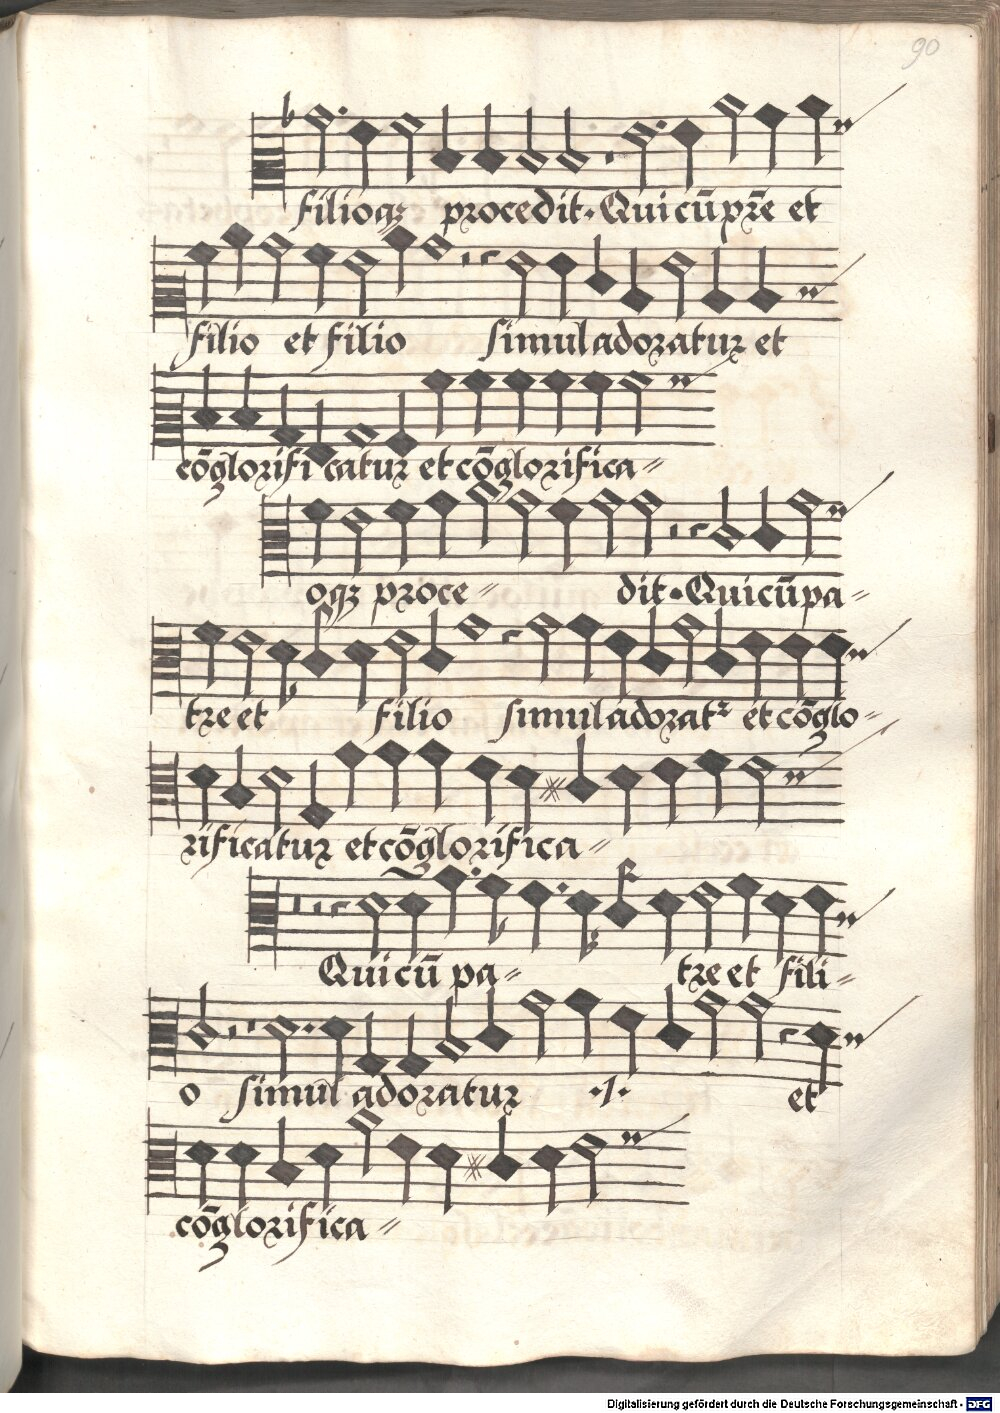 90
filioqꝫ procedit. Quicū pr̄e et
filio et filio simul adoratur et
cōglorificatur et cōglorifica〃
oqꝫ proce〃 dit. Quicū pa〃
tre et filio simul adoratᷣ et cōglo〃
rificatur et cōglorifica〃
Quicū pa〃 tre et fili〃
o simul adoratur .1. et
cōglorifica〃
Digitalisierung gefördert durch die Deutsche Forschungsgemeinschaft - DFG